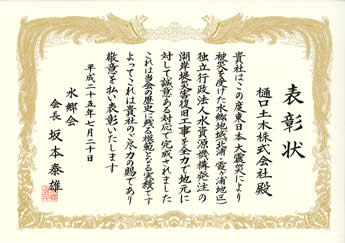 表彰状
樋口土木株式会社殿
貴社はこの度東日本大震災により
被災を受けた水郷地域(北浦・霞ヶ浦地区)
独立行政法人水資源機構発注の
湖岸堤災害復旧工事を全力で地元に
対して誠意ある対応で完成されました
これは当会の歴史に残る模範となる実績です
よってこれは貴社のご尽力の賜であり
敬意を払い表彰いたします
平成二十五年七月二十日
水郷会
会長 坂本泰雄